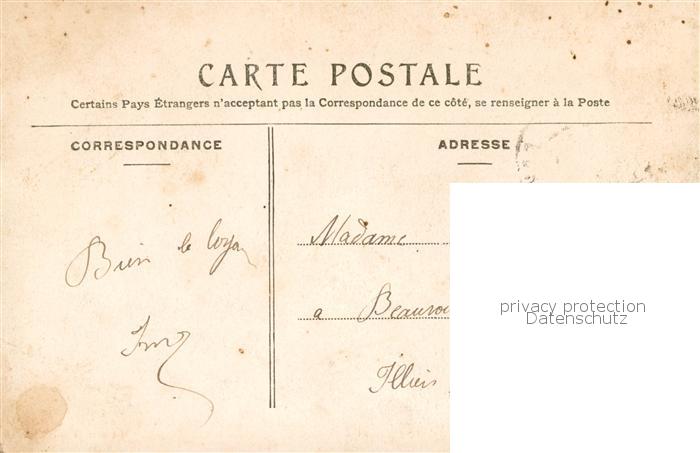 CARTE POSTALE
Certains Pays Étrangers n'acceptant pas la Correspondance de ce côté, se renseigner à la Poste
CORRESPONDANCE
ADRESSE
Bien le
Madame
a
Illiers
privacy protection
Datenschutz